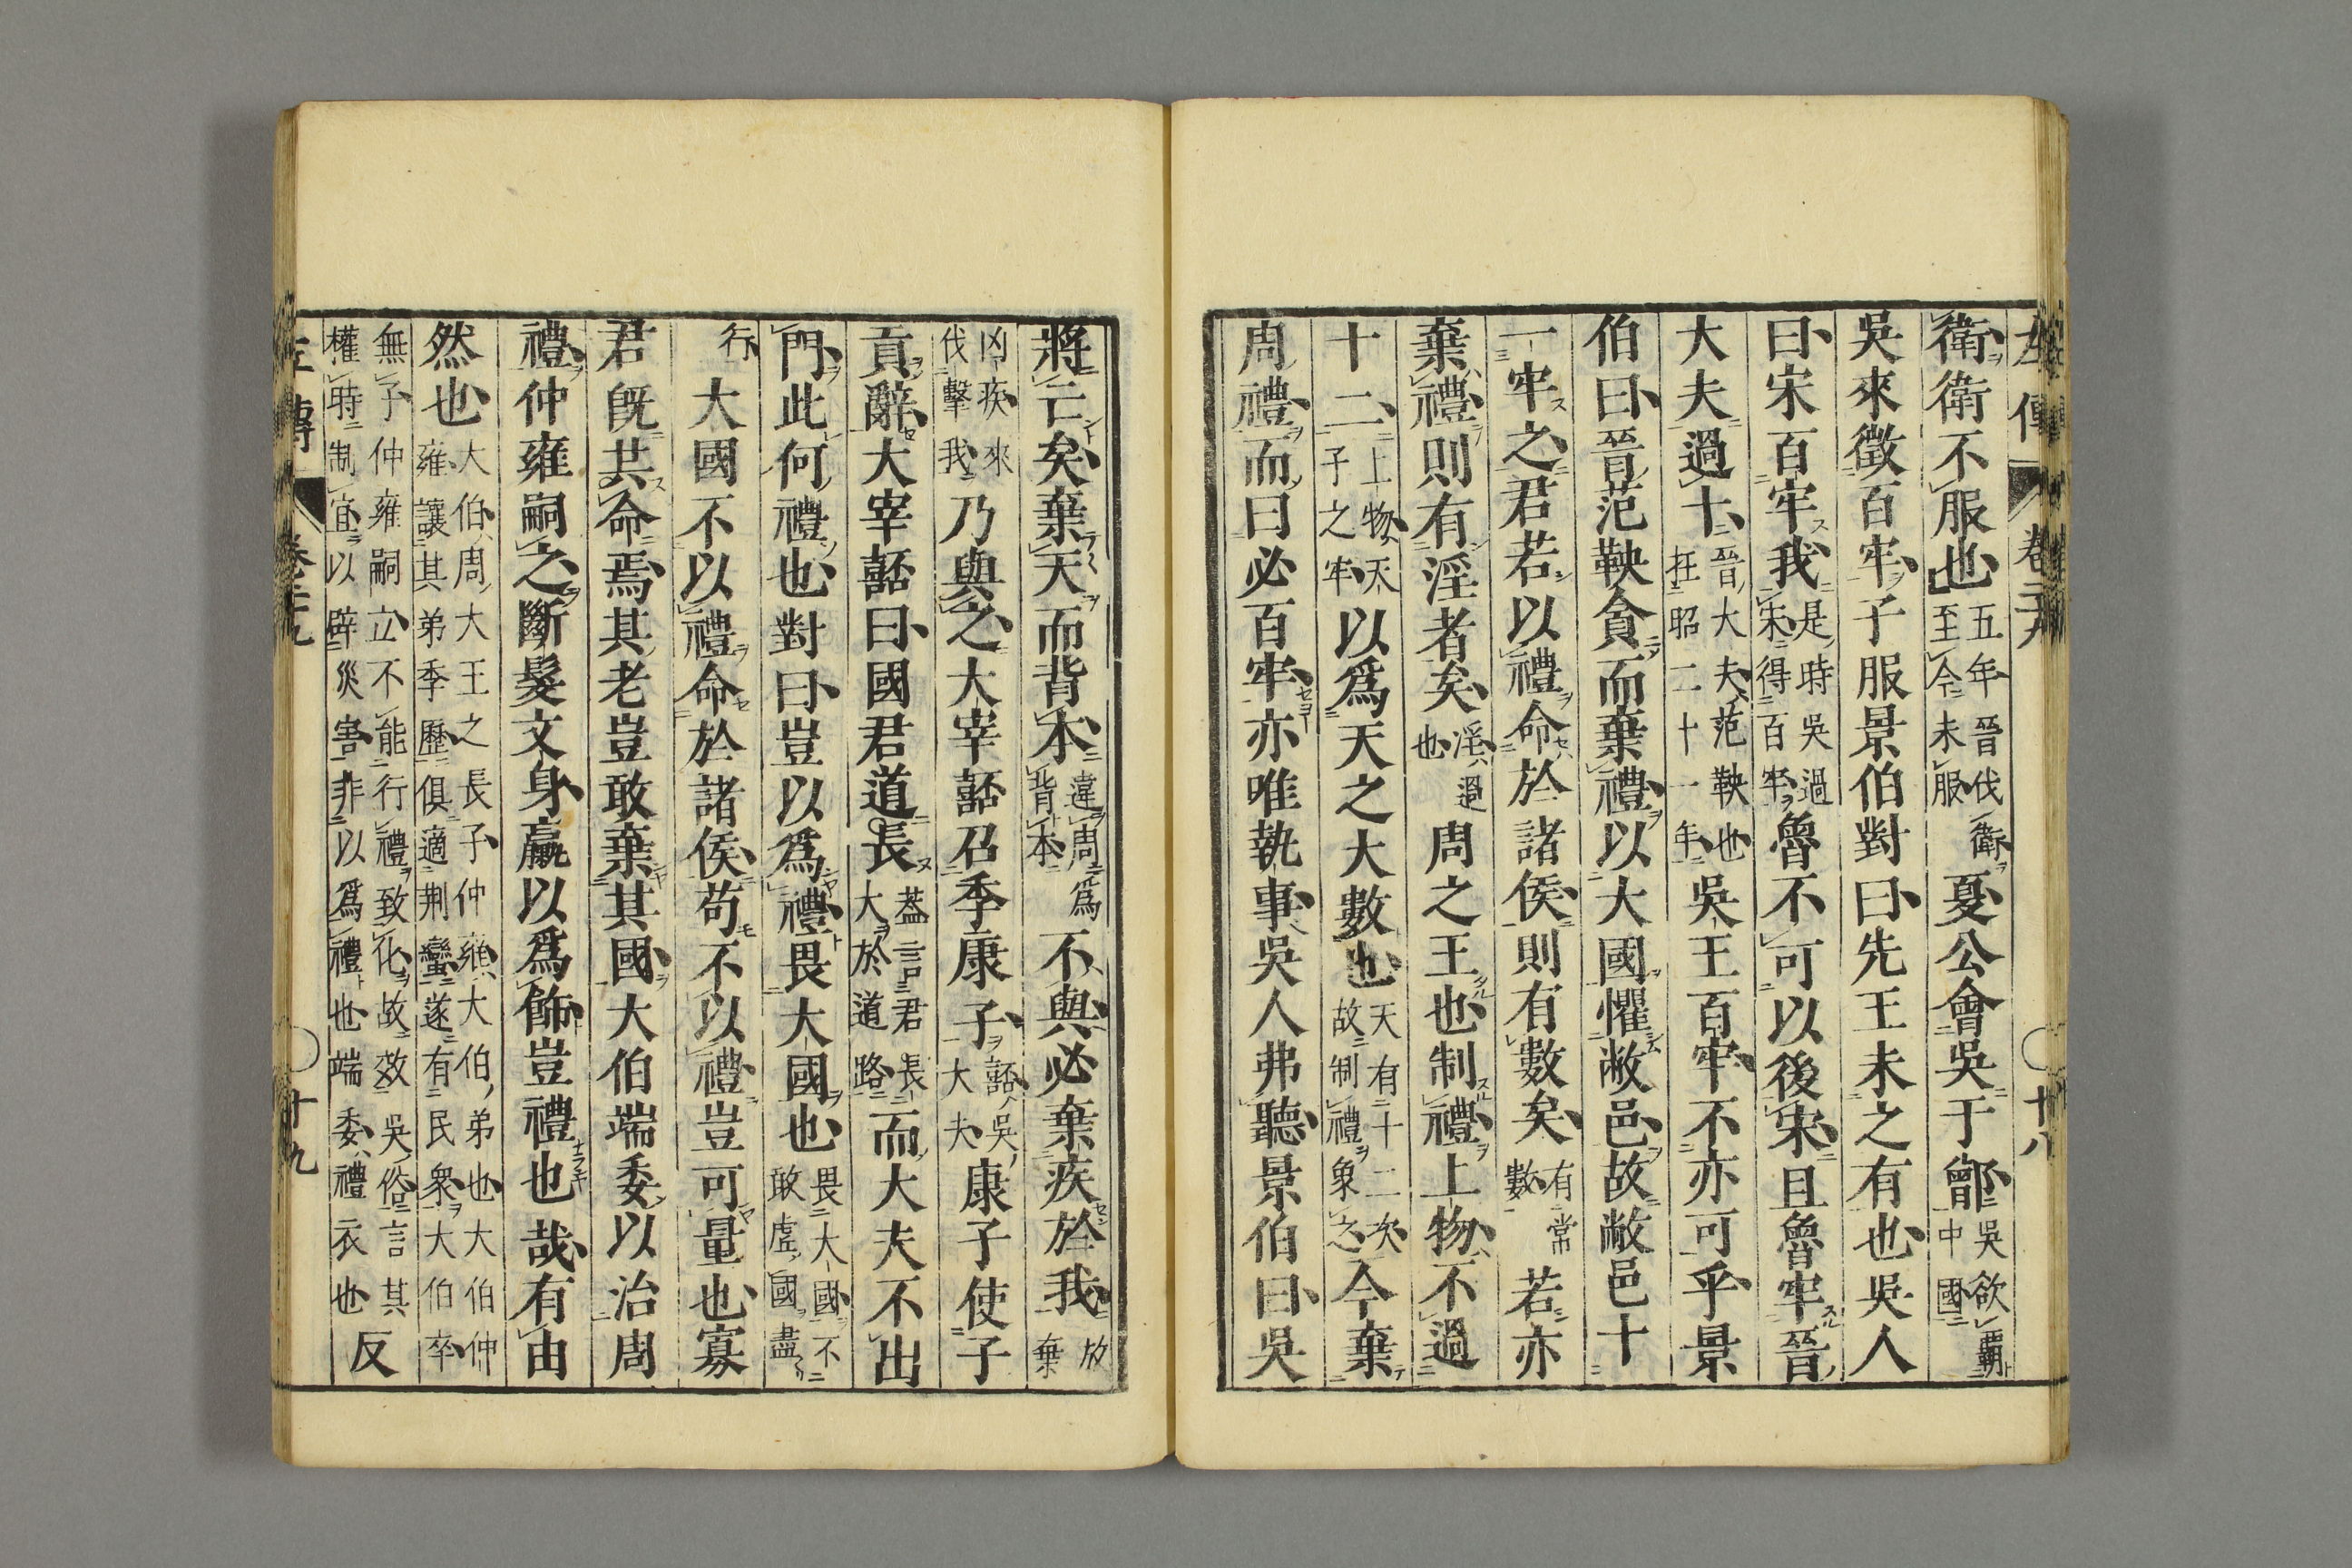 左傳 卷二十九 十八
衛衛不服也五年晉伐衛至今未服夏公會吳于鄫吳欲霸中國
吳來徵百牢子服景伯對曰先王未之有也吳人
曰宋百牢我是時吳過宋得百牢魯不可以後宋且魯牢晉
大夫過十晉大夫范鞅也在昭二十一年吳王百牢不亦可乎景
伯曰晉范鞅貪而棄禮以大國懼敝邑故敝邑十
一牢之君若以禮命於諸侯則有數矣有常數若亦
棄禮則有淫者矣淫過也周之王也制禮上物不過
十二上物天子之牢以爲天之大數也天有十二次故制禮象之今棄
周禮而曰必百牢亦唯執事吳人弗聽景伯曰吳
將亡矣棄天而背本違周爲背本不與必棄疾於我放棄
凶疾來伐擊我乃與之大宰嚭召季康子嚭吳大夫康子使子
貢辭大宰嚭曰國君道長蓋言君長大於道路而大夫不出
門此何禮也對曰豈以爲禮畏大國也畏大國不敢虛國盡
行大國不以禮命於諸侯苟不以禮豈可量也寡
君既共命焉其老豈敢棄其國大伯端委以治周
禮仲雍嗣之斷髮文身羸以爲飾豈禮也哉有由
然也大伯周大王之長子仲雍大伯弟也大伯仲雍讓其弟季歷俱適荆蠻遂有民衆大伯卒
無子仲雍嗣立不能行禮致化故效吳俗言其權時制宜以辟災害非以爲禮也端委禮衣也反
左傳 卷二十九 十九